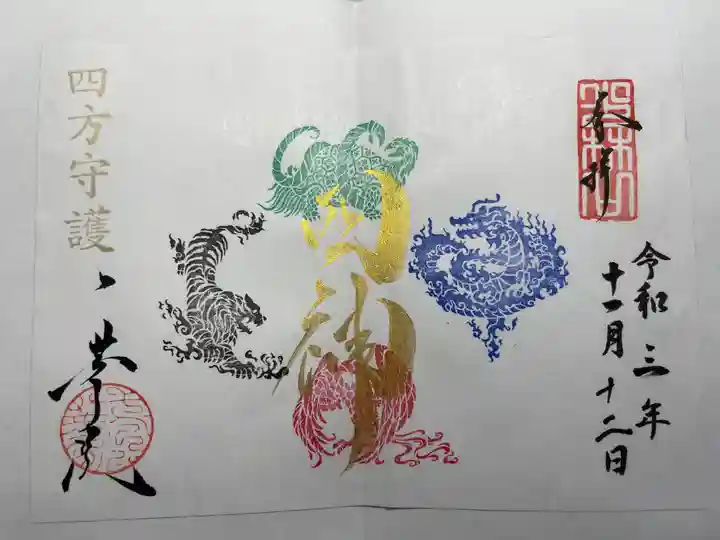 奉拝
令和三年
十一月十二日
四神
四方守護